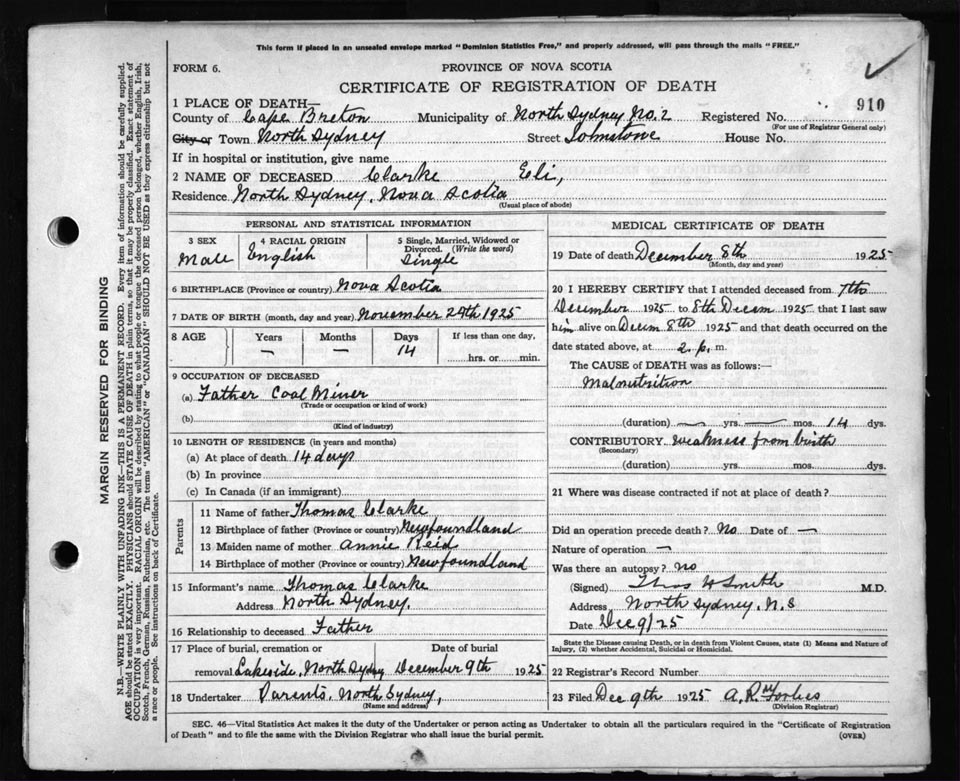 This form if placed in an unsealed envelope marked "Dominion Statistics Free," and properly addressed, will pass through the mails "FREE."
FORM 6.
PROVINCE OF NOVA SCOTIA
CERTIFICATE OF REGISTRATION OF DEATH
910
1 PLACE OF DEATH—
County of Cape Breton Municipality of North Sydney No. 2 Registered No.
(For use of Registrar General only)
City or Town North Sydney Street House No.
If in hospital or institution, give name
2 NAME OF DECEASED Clarke Eli,
Residence North Sydney, Nova Scotia
(Usual place of abode)
PERSONAL AND STATISTICAL INFORMATION
3 SEX 4 RACIAL ORIGIN 5 Single, Married, Widowed or Divorced. (Write the word)
Male English Single
6 BIRTHPLACE (Province or country) Nova Scotia
7 DATE OF BIRTH (month, day and year) November 24th 1925
8 AGE Years Months Days If less than one day,
— — 14 hrs. or min.
9 OCCUPATION OF DECEASED
(a) Father Coal Miner
(Trade or occupation or kind of work)
(b)
(Kind of industry)
10 LENGTH OF RESIDENCE (in years and months)
(a) At place of death 14 days
(b) In province
(c) In Canada (if an immigrant)
Parents
11 Name of father Thomas Clarke
12 Birthplace of father (Province or country) Newfoundland
13 Maiden name of mother Annie Reid
14 Birthplace of mother (Province or country) Newfoundland
15 Informant's name Thomas Clarke
Address North Sydney.
16 Relationship to deceased Father
17 Place of burial, cremation or Date of burial
removal Lakeside, North Sydney December 9th 1925
18 Undertaker Parents, North Sydney,
(Name and address)
MEDICAL CERTIFICATE OF DEATH
19 Date of death December 8th 1925
(Month, day and year)
20 I HEREBY CERTIFY that I attended deceased from 7th
December 1925 to 8th Decem 1925 that I last saw
him alive on Decem 8th 1925 and that death occurred on the
date stated above, at 2 p. m.
The CAUSE of DEATH was as follows:—
Malnutrition
(duration) — yrs. — mos. 14 dys.
CONTRIBUTORY weakness from birth
(Secondary)
(duration) yrs. mos. dys.
21 Where was disease contracted if not at place of death?
Did an operation precede death? No Date of —
Nature of operation —
Was there an autopsy? no
(Signed) Thos W Smith M.D.
Address North Sydney, N.S
Date Dec 9/25
State the Disease causing Death, or in death from Violent Causes, state (1) Means and Nature of
Injury, (2) whether Accidental, Suicidal or Homicidal.
22 Registrar's Record Number
23 Filed Dec 9th 1925 A. R. Forbes
(Division Registrar)
SEC. 46—Vital Statistics Act makes it the duty of the Undertaker or person acting as Undertaker to obtain all the particulars required in the "Certificate of Registration
of Death" and to file the same with the Division Registrar who shall issue the burial permit. (OVER)
MARGIN RESERVED FOR BINDING
N.B.—WRITE PLAINLY WITH UNFADING INK—THIS IS A PERMANENT RECORD. Every item of information should be carefully supplied.
AGE should be stated EXACTLY. PHYSICIANS should STATE CAUSE OF DEATH in plain terms, so that it may be properly classified. Exact statement of
OCCUPATION is very important. RACIAL ORIGIN will be described by stating to what people or tongue the deceased person belonged, whether English, Irish,
Scotch, French, German, Russian, Ruthenian, etc. The terms "AMERICAN" or "CANADIAN" SHOULD NOT BE USED as they express citizenship but not
a race or people. See instructions on back of Certificate.